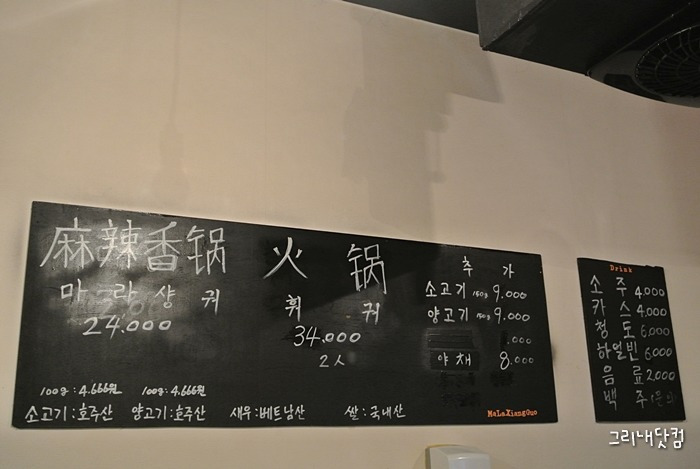 麻辣香锅
마라샹궈
24.000
火锅
훠궈
34.000
2人
추가
소고기 150g 9.000
양고기 150g 9.000
.000
야채 8.000
100g : 4.666원 100g : 4.666원
소고기 : 호주산 양고기 : 호주산 새우 : 베트남산 쌀 : 국내산
MaLaXiangGuo
Drink
소주 4.000
카스 4.000
청도 6.000
하얼빈 6.000
음료 2.000
백주
그리내닷컴